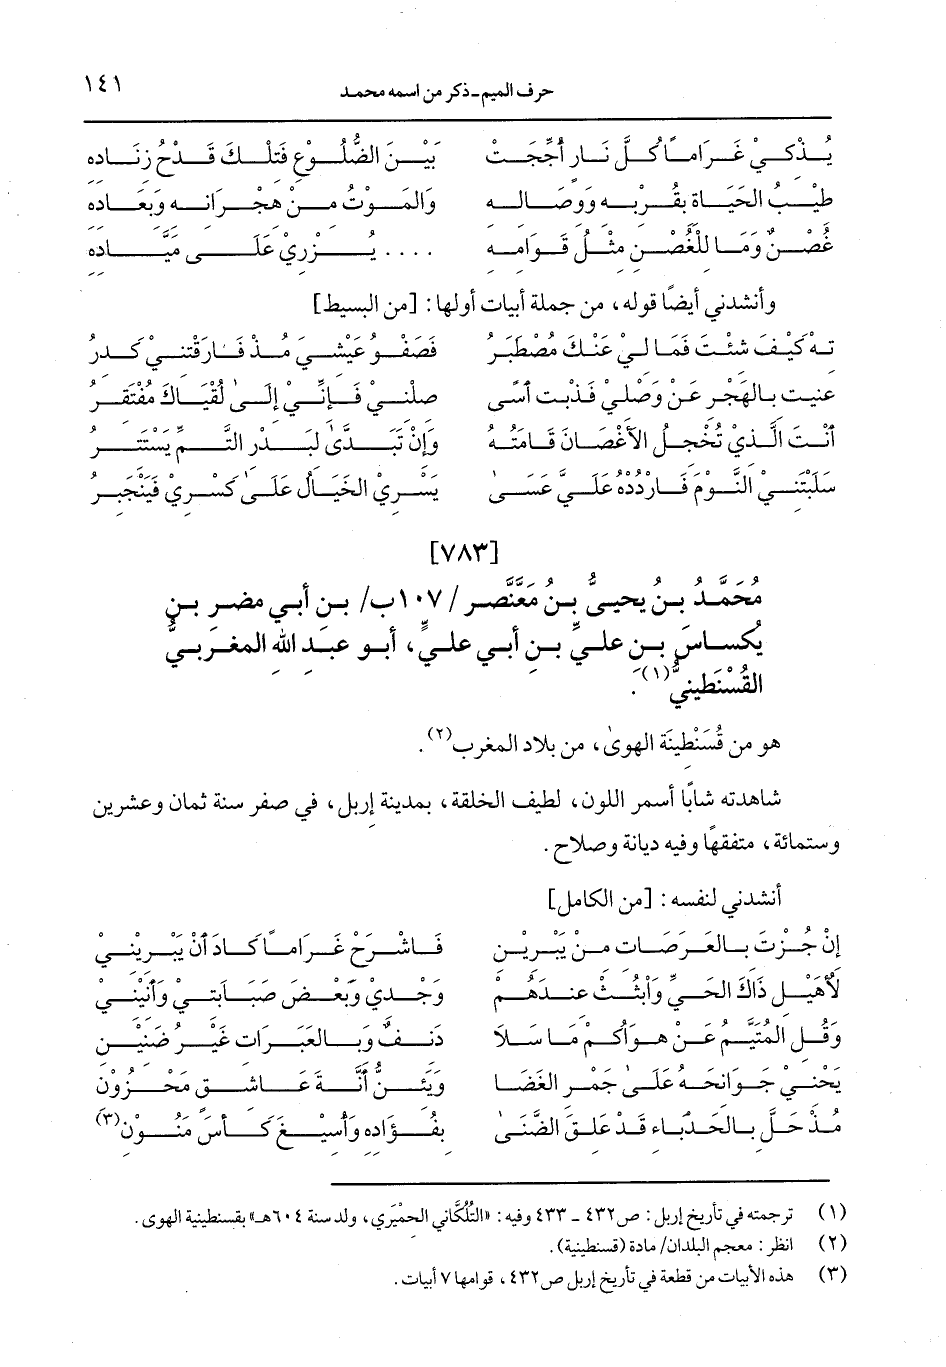 حرف الميم - ذكر من اسمه محمد ١٤١
يُذْكِي غَرَاماً كُلَّ نَارٍ أُجِّجَتْ بَيْنَ الضُّلُوْعِ فَتِلْكَ قَدْحُ زِنَادِهِ
طِيْبُ الحَيَاةِ بِقُرْبِهِ وَوِصَالِهِ وَالمَوْتُ مِنْ هِجْرَانِهِ وَبِعَادِهِ
غُصْنٌ وَمَا لِلْغُصْنِ مِثْلُ قَوَامِهِ . . . . يُزْرِيْ عَلَى مَيَّادِهِ
وأنشدني أيضاً قوله، من جملة أبيات أولها: [من البسيط]
تِهْ كَيْفَ شِئْتَ فَمَا لِيْ عَنْكَ مُصْطَبَرُ فَصَفْوُ عَيْشِيْ مُذْ فَارَقْتَنِيْ كَدِرُ
عنيت بِالهَجْرِ عَنْ وَصْلِيْ فَذُبْتُ أَسًى صِلْنِيْ فَإِنِّيْ إِلَى لُقْيَاكَ مُفْتَقِرُ
أَنْتَ الَّذِيْ تُخْجِلُ الأَغْصَانَ قَامَتُهُ وَإِنْ تَبَدَّى لِبَدْرِ التَّمِّ يَسْتَتِرُ
سَلَبْتَنِيْ النَّوْمَ فَارْدُدْهُ عَلَيَّ عَسَى يَسْرِي الخَيَالُ عَلَى كَسْرِيْ فَيَنْجَبِرُ
[٧٨٣]
مُحَمَّدُ بنُ يحيىُ بنُ مُعَنَّصِرِ /١٠٧ب/ بن أبي مضر بن
يكساسَ بن عليِّ بنِ أبي عليٍّ، أبو عبدِ اللهِ المغربيُّ
القُسَنْطِينيُّ(١).
هو من قُسَنْطِينَة الهوىٰ، من بلاد المغرب(٢).
شاهدته شابًا أسمر اللون، لطيف الخلقة، بمدينة إربل، في صفر سنة ثمان وعشرين
وستمائة، متفقهًا وفيه ديانة وصلاح.
أنشدني لنفسه: [من الكامل]
إِنْ جُزْتَ بِالعَرَصَاتِ مِنْ يَبْرِيْنِ فَاشْرَحْ غَرَاماً كَادَ أَنْ يَبْرِيْنِيْ
لأُهَيْلِ ذَاكَ الحَيِّ وَابْثُثْ عِنْدَهُمْ وَجْدِيْ وَبَعْضَ صَبَابَتِيْ وَأَنِيْنِيْ
وَقُلِ المُتَيَّمُ عَنْ هَوَاكُمْ مَا سَلَا دَنِفٌ وَبِالعَبَرَاتِ غَيْرُ ضَنِيْنِ
يَحْنِيْ جَوَانِحَهُ عَلَى جَمْرِ الغَضَا وَيَئِنُّ أَنَّةَ عَاشِقٍ مَحْزُوْنِ
مُذْ حَلَّ بِالحَدْبَاءِ قَدْ عَلِقَ الضَّنَى بِفُؤَادِهِ وَأُسِيْغَ كَأْسَ مَنُوْنِ(٣)
(١) ترجمته في تأريخ إربل: ص٤٣٢ - ٤٣٣ وفيه: «التُلُكَّاتي الحِمْيَري، ولد سنة ٦٠٤هـ» بقسنطينية الهوى.
(٢) انظر: معجم البلدان/ مادة (قسنطينية).
(٣) هذه الأبيات من قطعة في تأريخ إربل ص٤٣٢، قوامها ٧ أبيات.